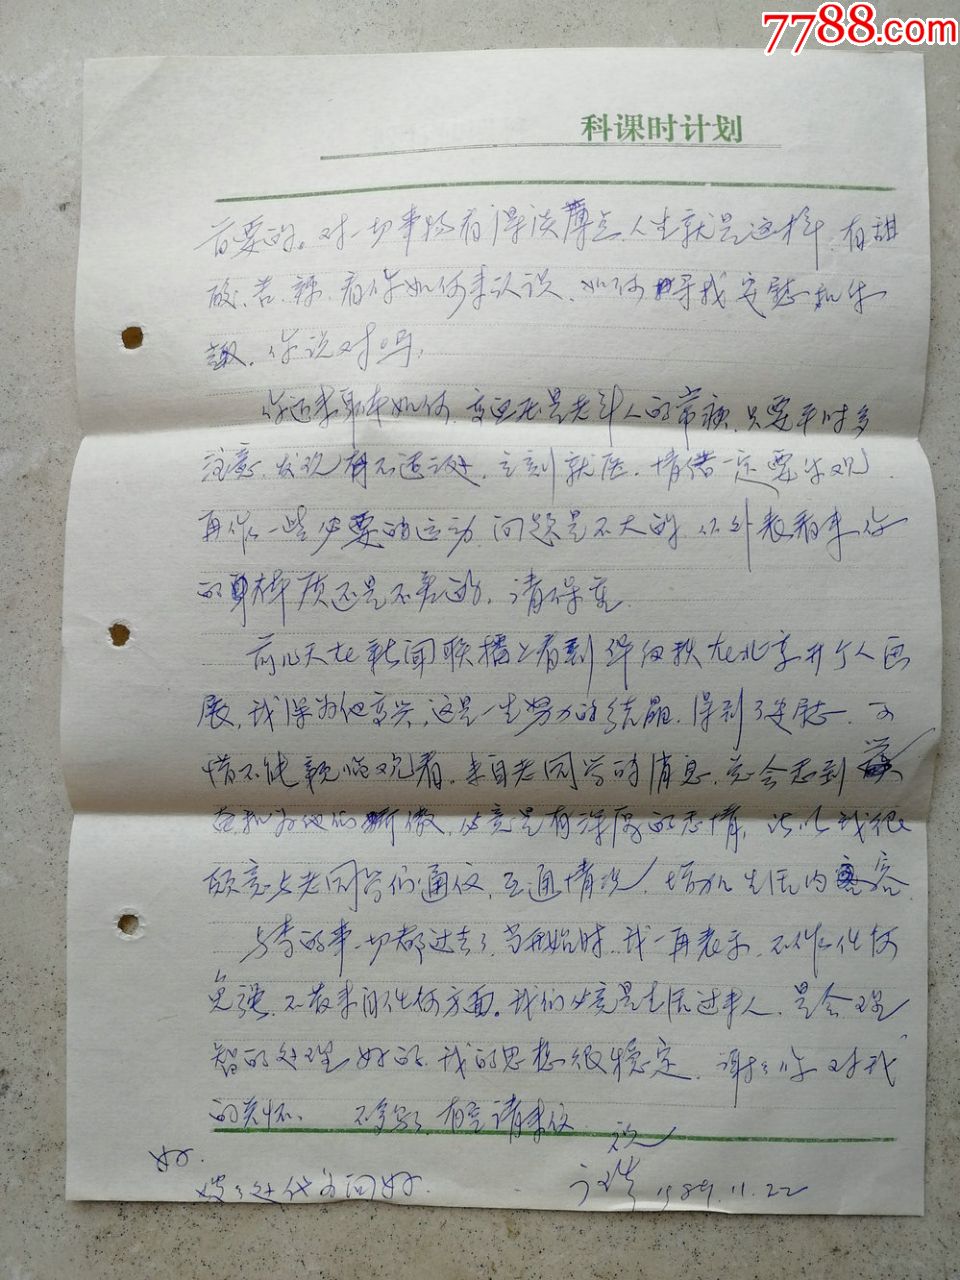 7788.com
科课时计划
要的。对一切事物看得淡薄点,人生就是这样,有甜
酸、苦、辣,看你如何来认识,如何寻找安慰和乐
趣,你说对吗,
你近来身体如何,是老年人的常病,只要平时多
注意,发现有不适之处,立刻就医,情绪一定要乐观
再作一些必要的运动,问题是不大的,从外表看来你
的身体质还是不差的,请保重
前几天在新闻联播上看到 在北京开个人画
展,我深为他高兴,这是一生努力的结晶,得到了安慰,可
惜不能亲临观看,来自老同学的消息,总会感到
为他们骄傲,必竟是有深厚的感情,所以我很
愿意与老同学们通仪,互通情况,增加生活内容
与李的事一切都过去了,当开始时,我一再表示,不作任何
勉强,不带来任何方面。我们必竟是生活过来人,是会理
智的处理好的,我的思想很稳定,谢谢你对我
的关怀、 不多写了,有空请来仪
祝
好.
嫂嫂处代为问好.
1989.11.22